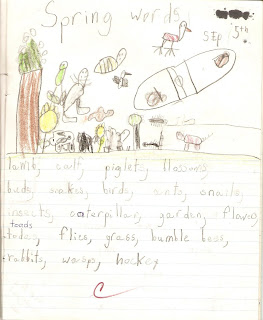 Spring words
Sep 5th
lamb, calf, piglets, blossoms,
buds, snakes, birds, ants, snails,
insects, caterpillar, garden, flowers,
toads
flies, grass, bumble bees,
rabbits, wasp, hockey